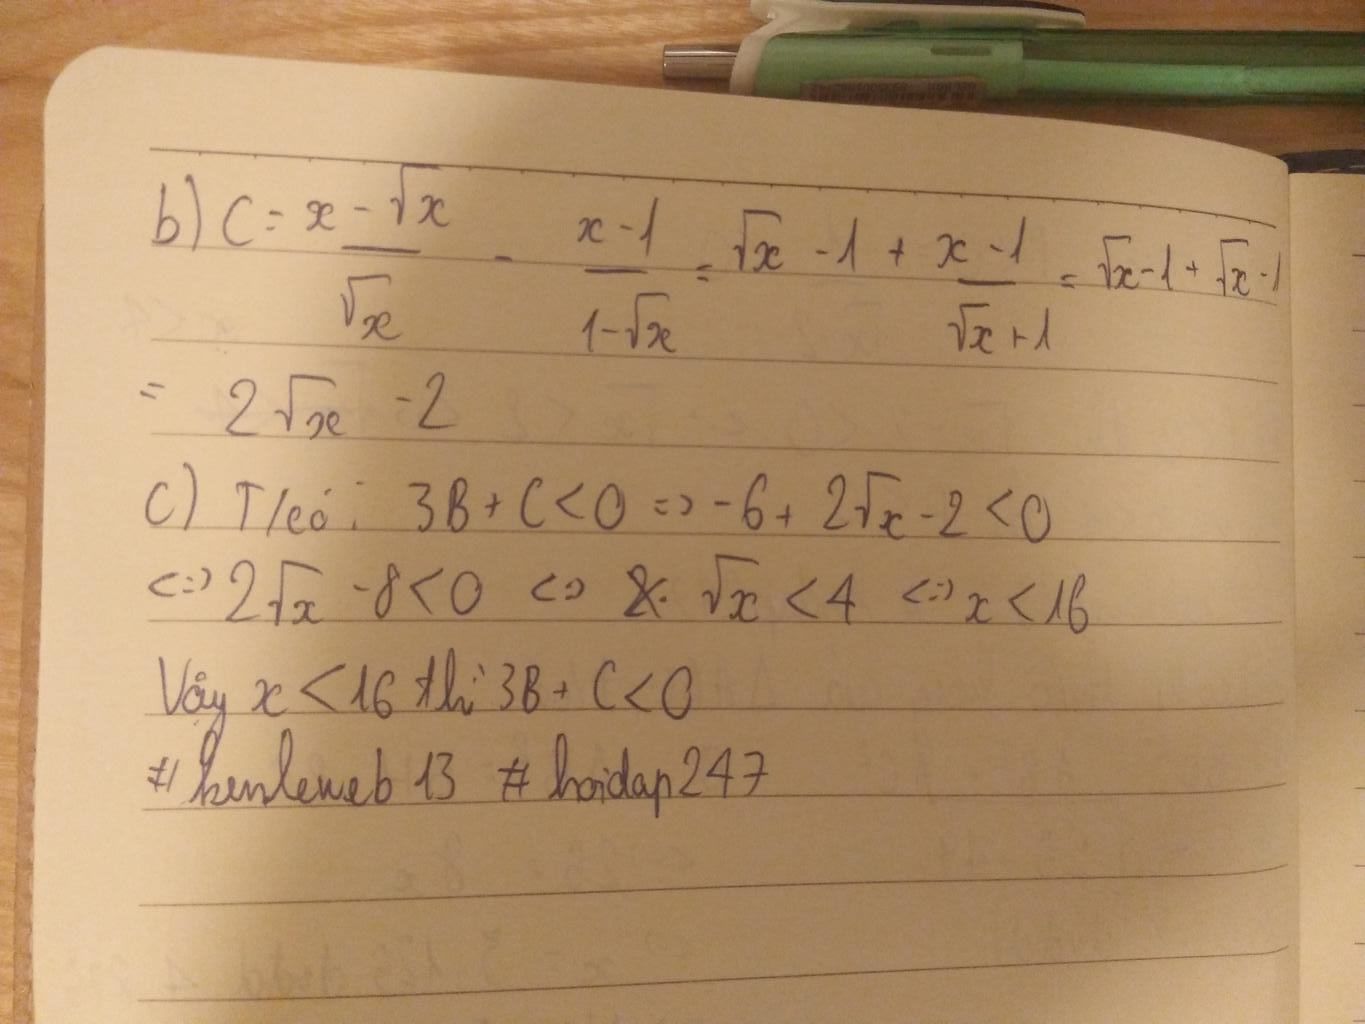 b) C = x - √x / √x - x - 1 / 1 - √x = √x - 1 + x - 1 / √x + 1 = √x - 1 + √x - 1
= 2√x - 2
c) T/có: 3B + C < 0 => -6 + 2√x - 2 < 0
<=> 2√x - 8 < 0 <=> √x < 4 <=> x < 16
Vậy x < 16 thì 3B + C < 0
# kenleweb 13 # hoidap247